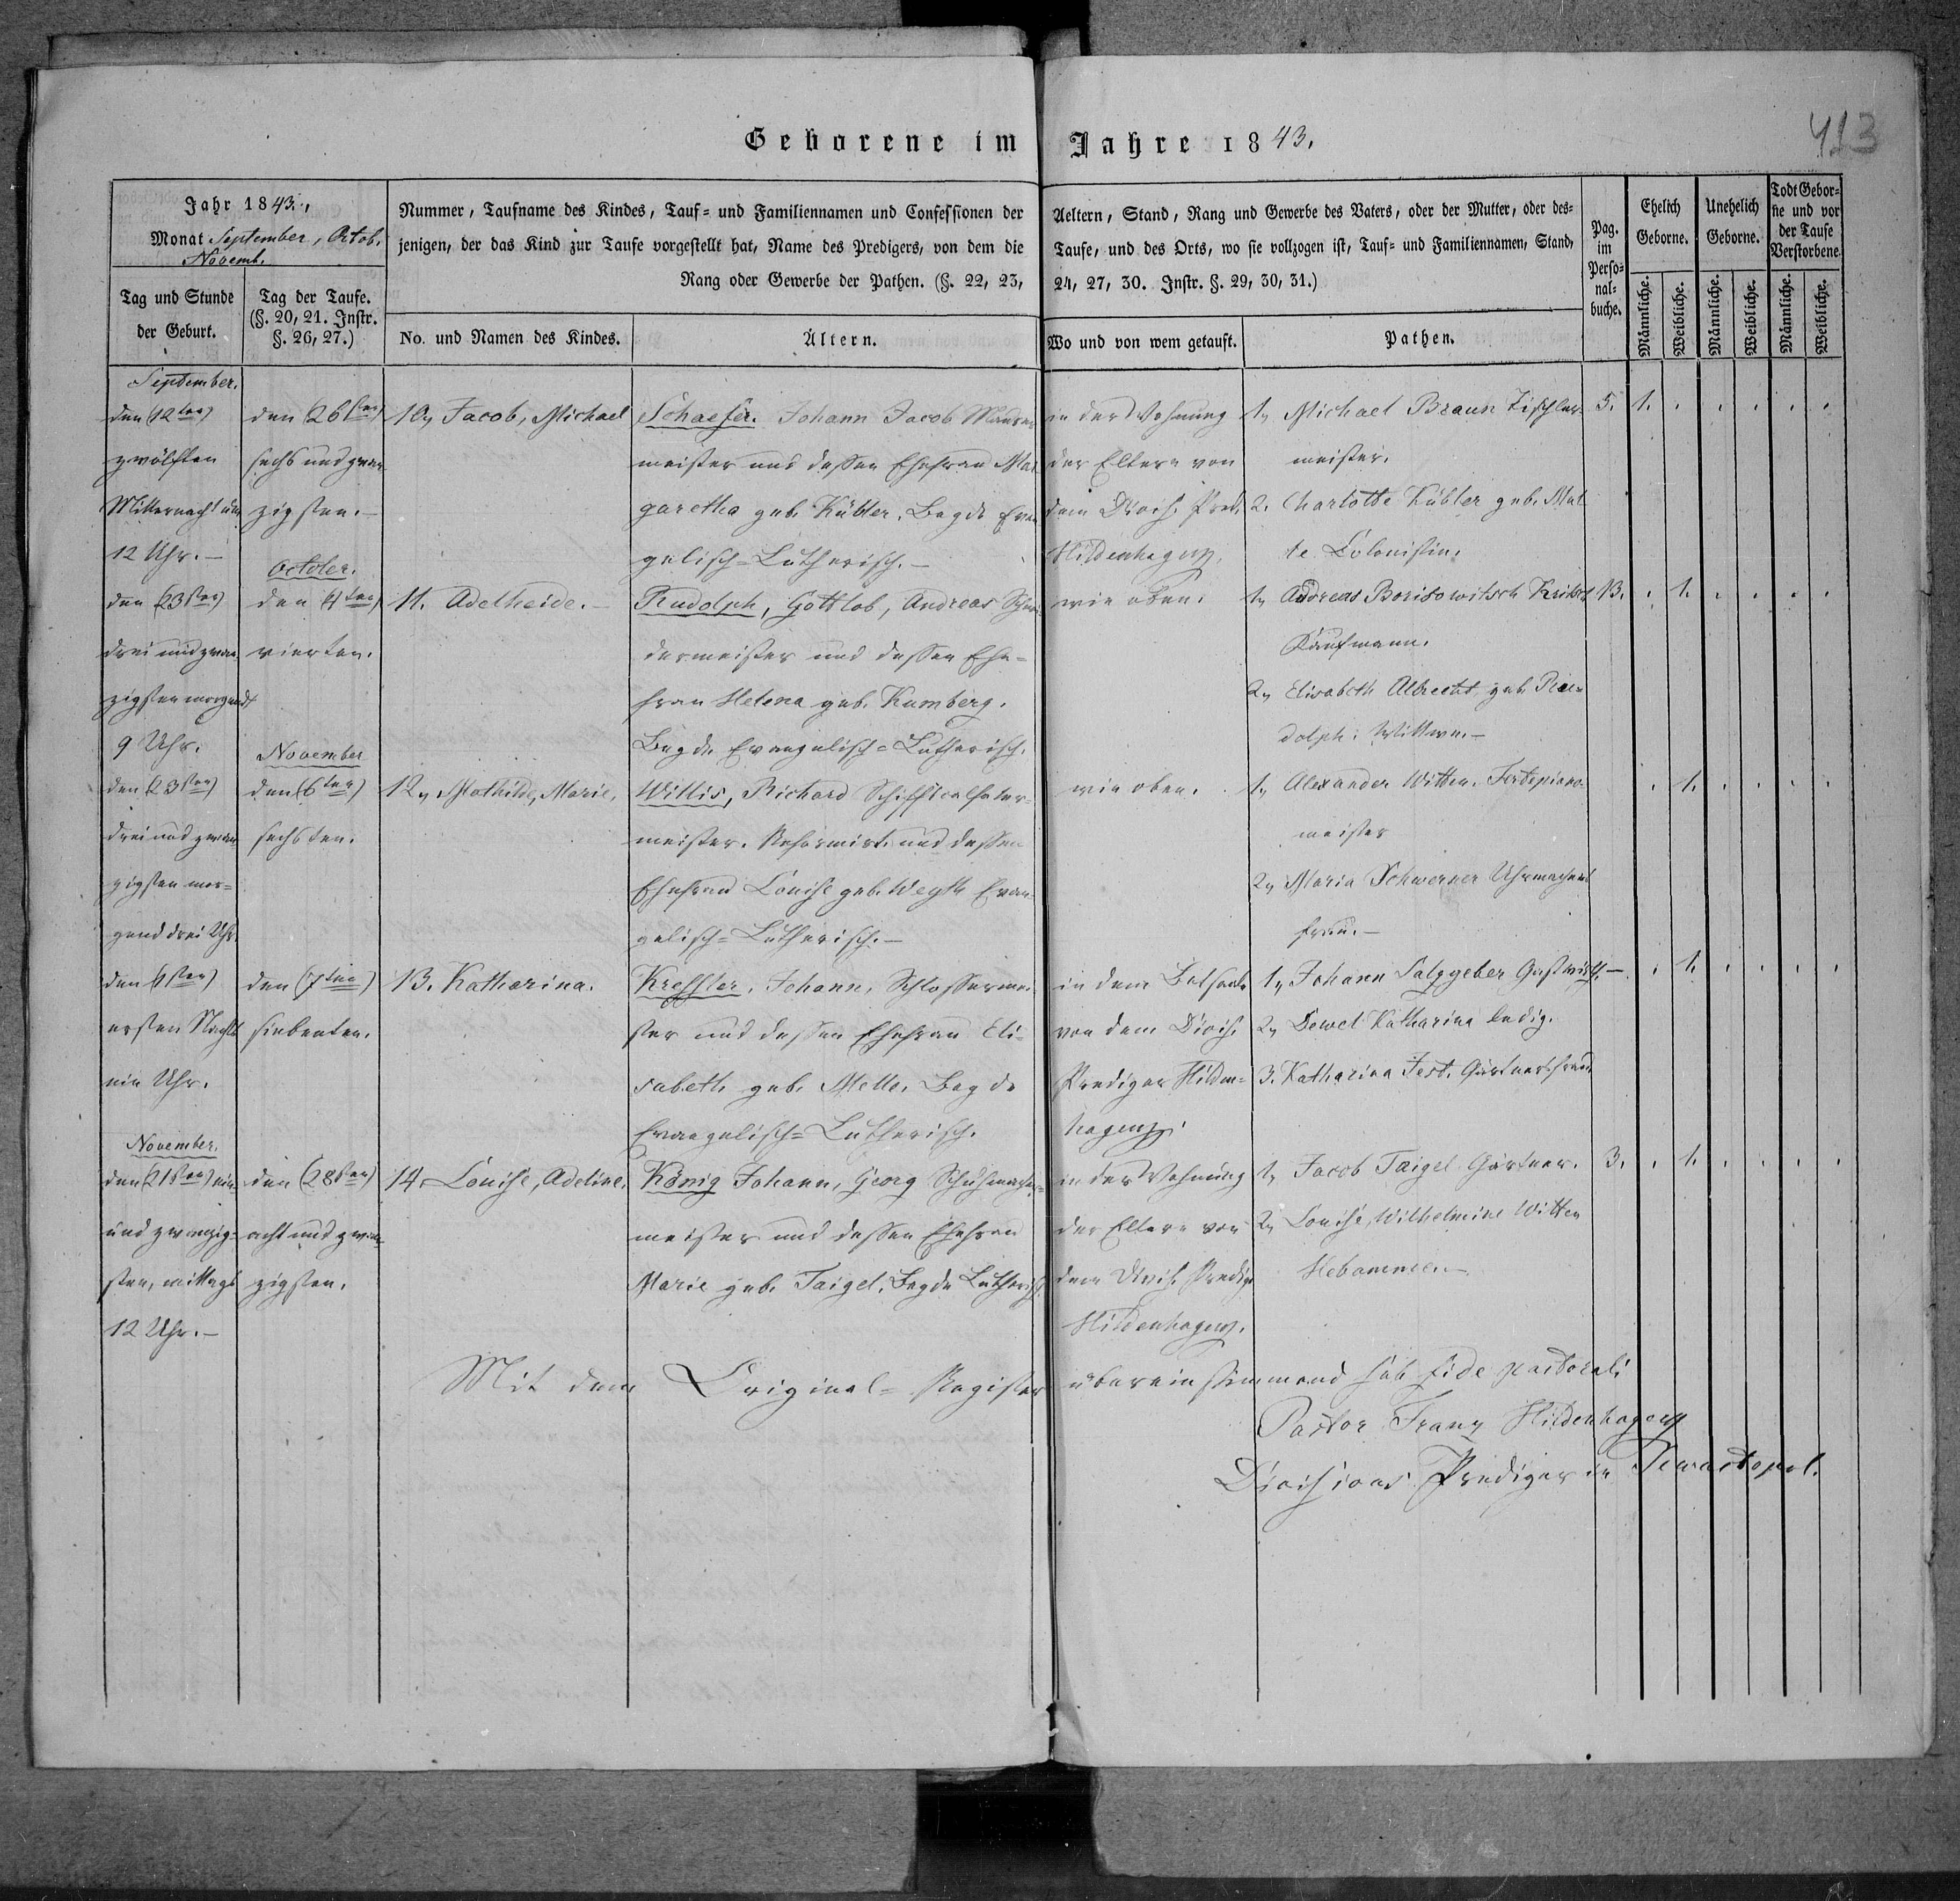 Geborene im Jahre 1843.
413
Jahr 1843.,
Monat September, Octob.
Novemb.
Tag und Stunde
der Geburt.
Tag der Taufe.
(§. 20, 21. Instr.
§. 26, 27.)
Nummer, Taufname des Kindes, Tauf= und Familiennamen und Confessionen der Aeltern, Stand, Rang und Gewerbe des Vaters, oder der Mutter, oder des=
jenigen, der das Kind zur Taufe vorgestellt hat, Name des Predigers, von dem die Taufe, und des Orts, wo sie vollzogen ist, Tauf= und Familiennamen, Stand,
Rang oder Gewerbe der Pathen. (§. 22, 23, 24, 27, 30. Instr. §. 29, 30, 31.)
No. und Namen des Kindes.
Ältern.
Wo und von wem getauft.
Pathen.
Pag.
im
Perso=
nal=
buche.
Ehelich
Geborne.
Unehelich
Geborne.
Todt Gebor=
ne und vor
der Taufe
Verstorbene.
Männliche.
Weibliche.
Männliche.
Weibliche.
Männliche.
Weibliche.
September.
den (12ten)
zwölften
Mitternacht um
12 Uhr.—
den (26sten)
sechs und zwan
zigsten.—
10, Jacob, Michael
Schaefer. Johann Jacob Maurer
meister und dessen Ehefrau Mar
garetha geb. Kübler. Beyde Evan
gelisch=Lutherisch.—
in der Wohnung
der Eltern von
dem Divis. Pred.
Hildenhagen.
1, Michael Braun Tischler
meister.
2. Charlotte Kübler geb. Mul
te Colonistin.
5. 1. . . . . .
den (23sten)
drei und zwan
zigsten morgends
9 Uhr.
October.
den (4ten)
vierten.
11. Adelheide.—
Rudolph, Gottlob, Andreas Schnei
dermeister und dessen Ehe=
frau Helena geb. Kumberg.
Beyde Evangelisch=Lutherisch.
wie oben.
1, Andreas Borisowitsch
Kaufmann.
2, Elisabeth Albrecht geb. Ru
dolph. Wittwe.—
13. . 1. . . . .
den (23sten)
drei und zwan
zigsten mor=
gend drei Uhr.
November
den (6ten)
sechsten.
12, Mathilde, Marie,
Willis, Richard
meister. Reformirt. und dessen
Ehefrau Louise geb. Weyth Evan=
gelisch=Lutherisch.—
wie oben.
1, Alexander Witten. Fortepiano
meister
2, Maria Schwerner Uhrmachers
frau.—
. 1. . . . .
den (1sten)
ersten Nachts
ein Uhr.
den (7ten)
siebenten.
13. Katharina.
Kressler, Johann, Schlossermei
ster und dessen Ehefrau Eli=
sabeth geb. Melle. Beyde
Evangelisch=Lutherisch.
in dem Betsaale
von dem Divis.
Prediger Hilden=
hagen.
1, Johann Salzgeber Gastwirth.
2, Dewel Katharina ledig.
3. Katharina Fest. Gärtnersfrau
— . 1. . . . .
November.
den (21sten) ein
und zwanzig=
sten, mittags
12 Uhr.—
den (28sten)
acht und zwan
zigsten.
14. Louise, Adeline.
König Johann, Georg Schuhmacher=
meister und dessen Ehefrau
Marie geb. Taigel. Beyde Lutherisch.
in der Wohnung
der Eltern von
dem Divis. Predigr
Hildenhagen.
1, Jacob Taigel Gärtner.
2, Louise, Wilhelmine Witten
Hebamme.—
3. . 1. . . . .
Mit dem Original=Register übereinstimmend sub fide pastorali
Pastor Franz Hildenhagen
Divisions Prediger in Sewastopol.